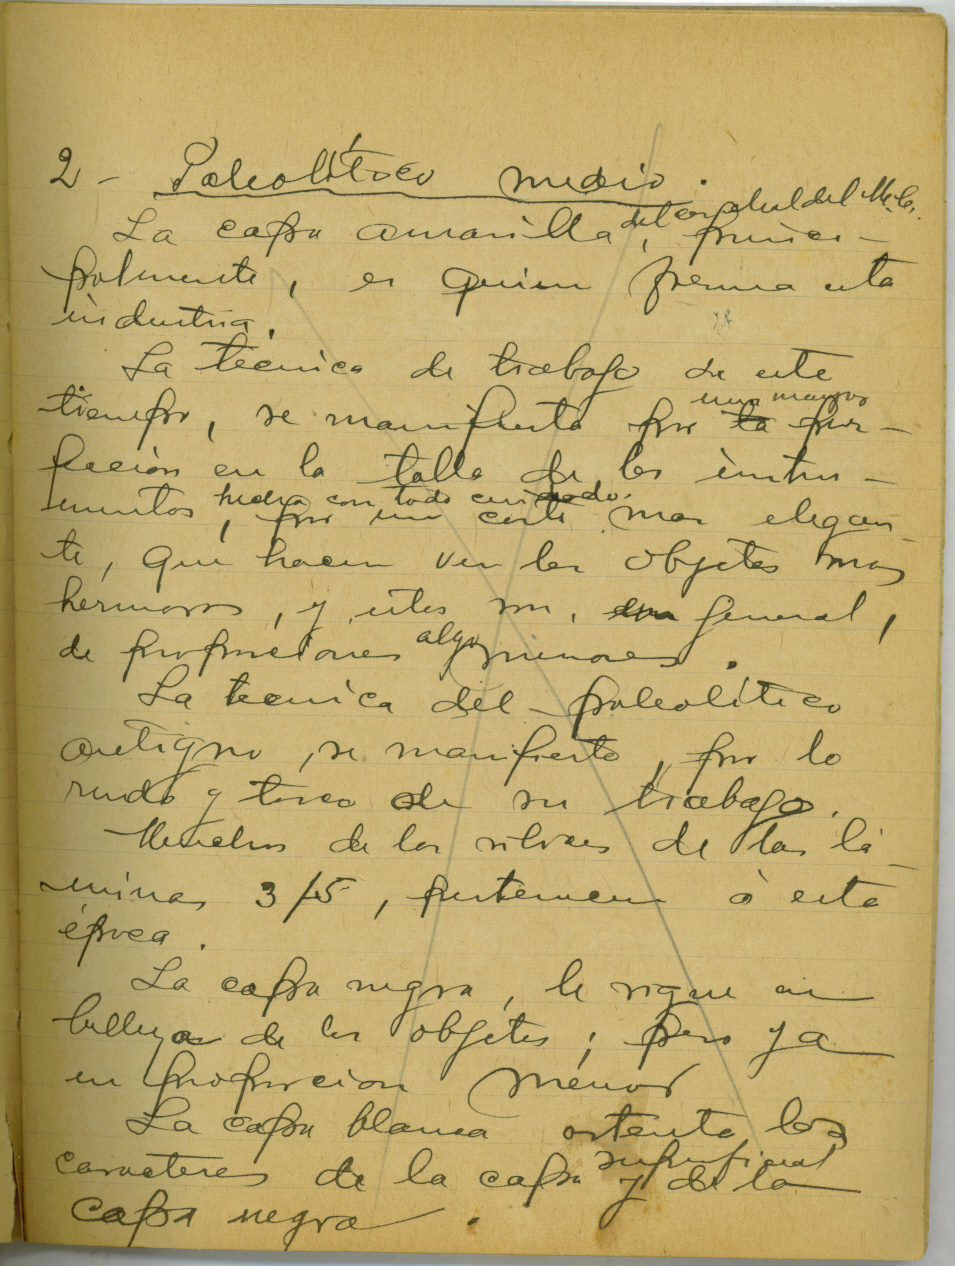 2 - Paleolítico medio.
La capa amarilla del corral del M. G., princi-
palmente, es quien forma esta
industria.
La técnica de trabajo de este
tiempo, se manifiesta por la una mayor per-
fección en la talla de los instru-
mentos, hecha con todo cuidado. por un corte mas elegan-
te, que hacen ver los objetos mas
hermosos, y estos son, en general,
de proporciones algo menores.
La tecnica del paleolítico
antiguo, se manifiesta, por lo
rudo y tosco de su trabajo.
Muchos de los silices de las lá-
minas 3/15, pertenecen á esta
época.
La capa negra, le sigue en
belleza de los objetos; pero ya
en proporcion menor
La capa blanca ostenta los
caracteres de la capa superficial y de la
capa negra.